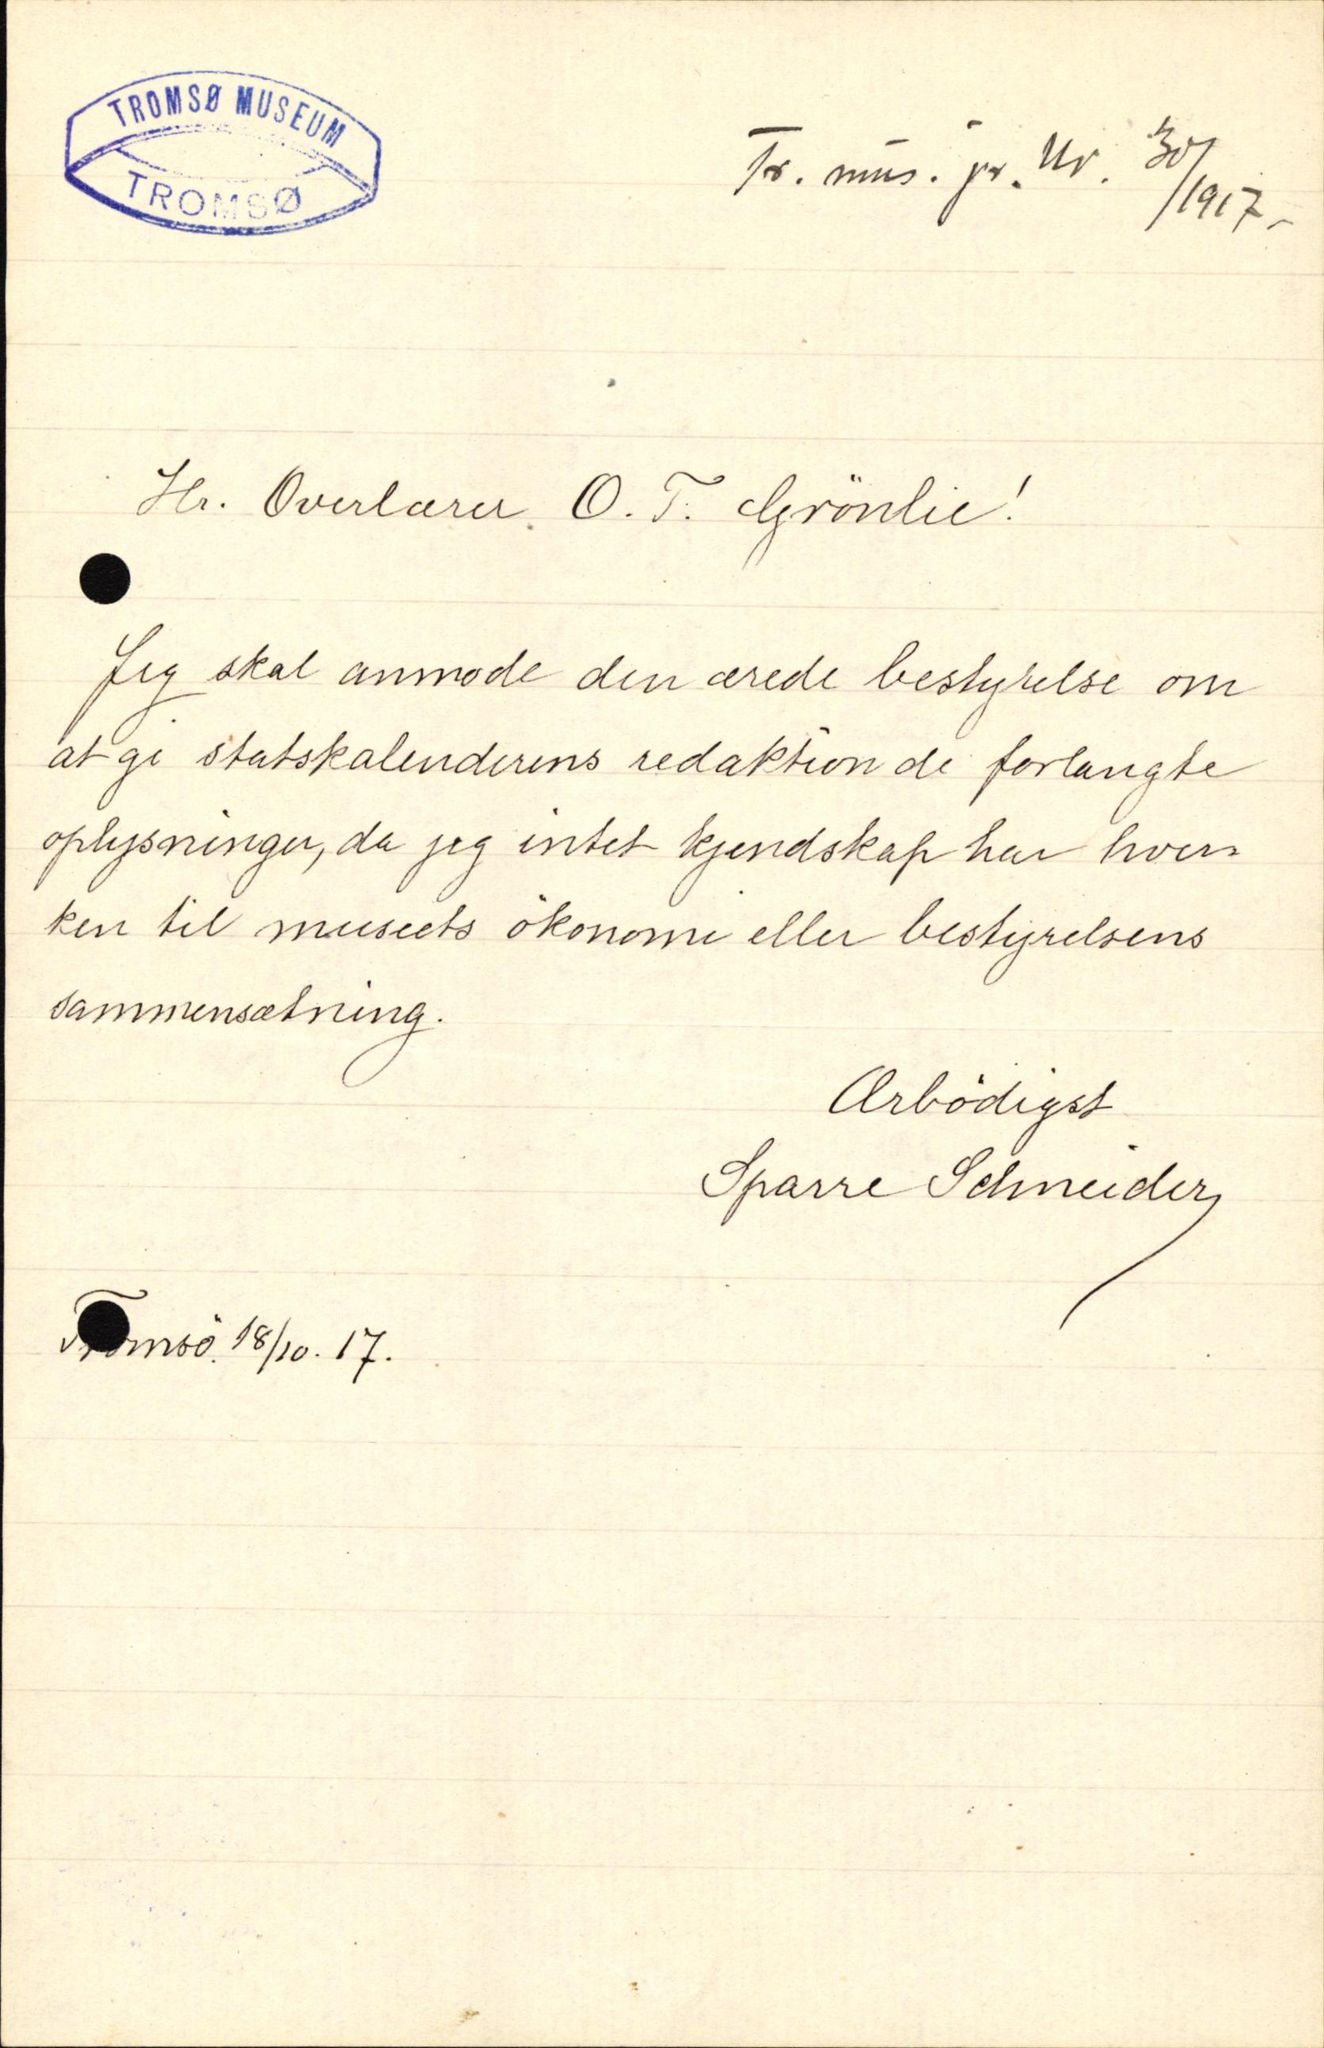 TROMSØ MUSEUM
TROMSØ
Tr. mus. jr. Nr. 30/1917.
Hr. Overlærer O. T. Grönlie!
Jeg skal anmode den ærede bestyrelse om
at gi statskalenderens redaktion de forlangte
oplysninger, da jeg intet kjendskap har hver-
ken til museets ökonomi eller bestyrelsens
sammensætning.
Ærbödigst
Sparre Schneider
Tromsö 18/10. 17.